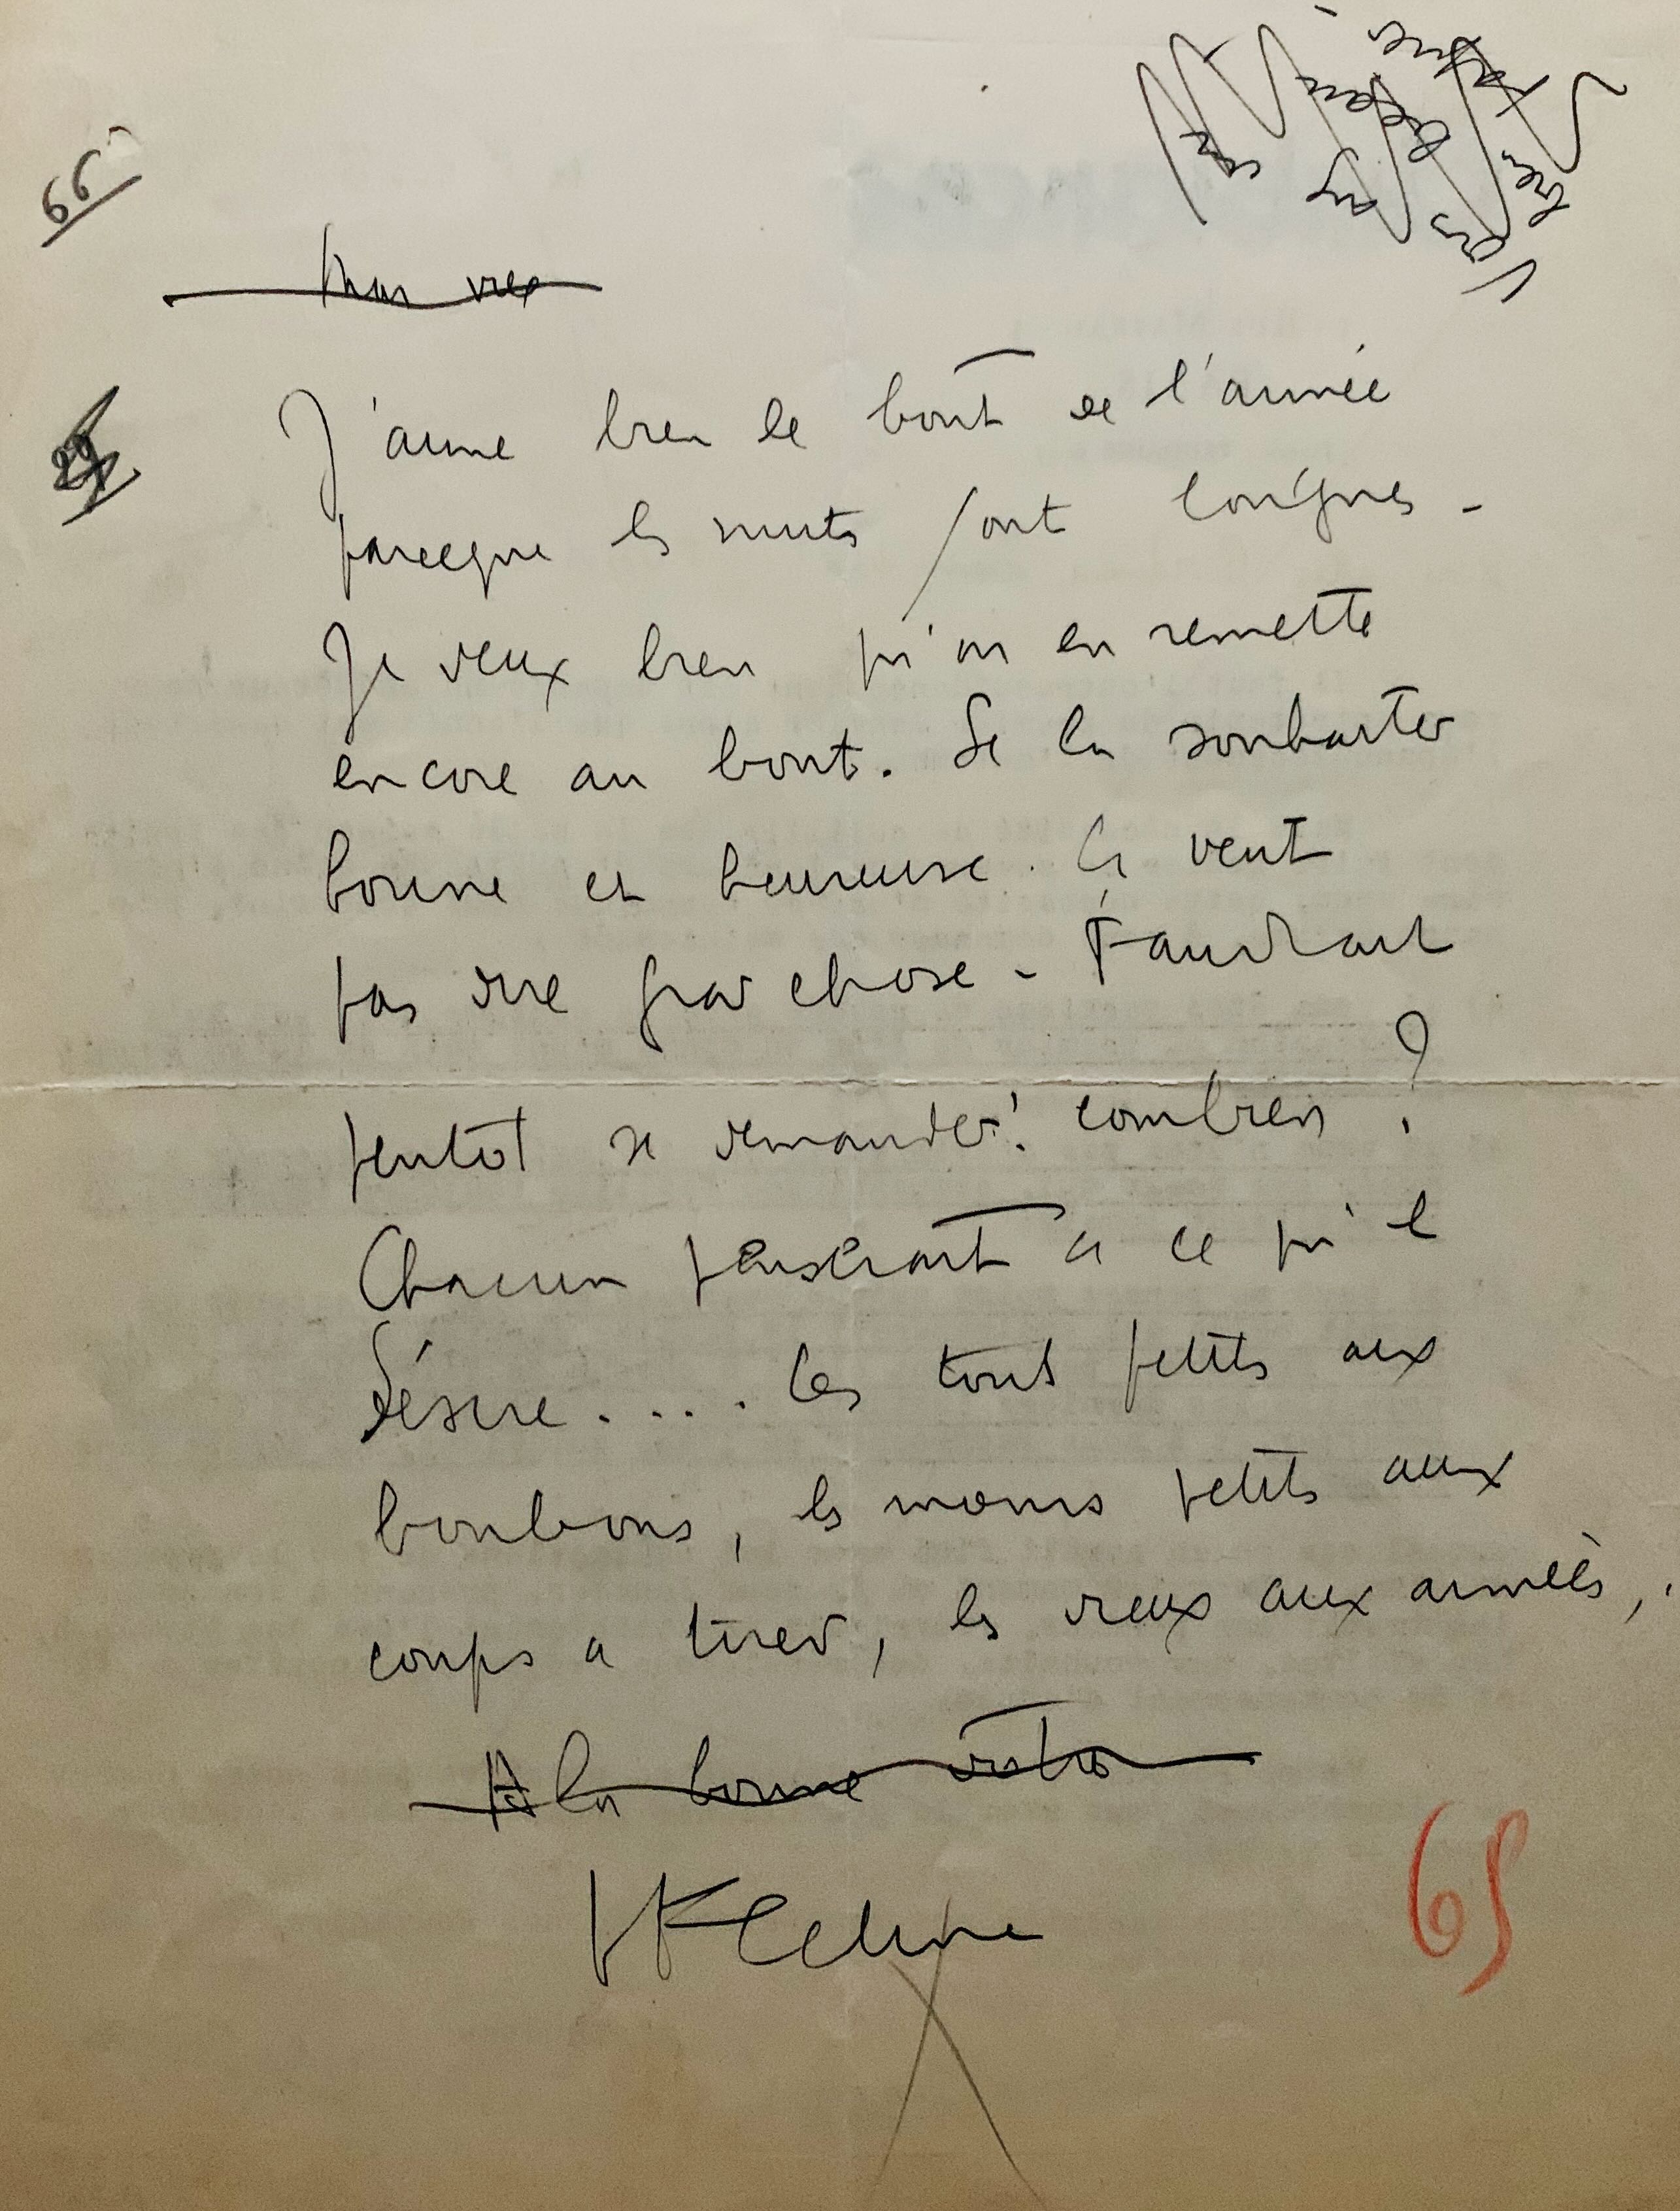 66
Mon vieux
J'aime bien le bout de l'année
parceque les nuits sont longues -
Je veux bien qu'on en remette
encore au bout. Se la souhaiter
bonne et heureuse. Ça veut
pas dire grand chose - Faudrait
plutôt se demander! combien ?
Chacun penserait à ce qu'il
désire.... les tout petits aux
bonbons, les moins petits aux
coups a tirer, les vieux aux années,.
A la bonne votre
LF Celine
65